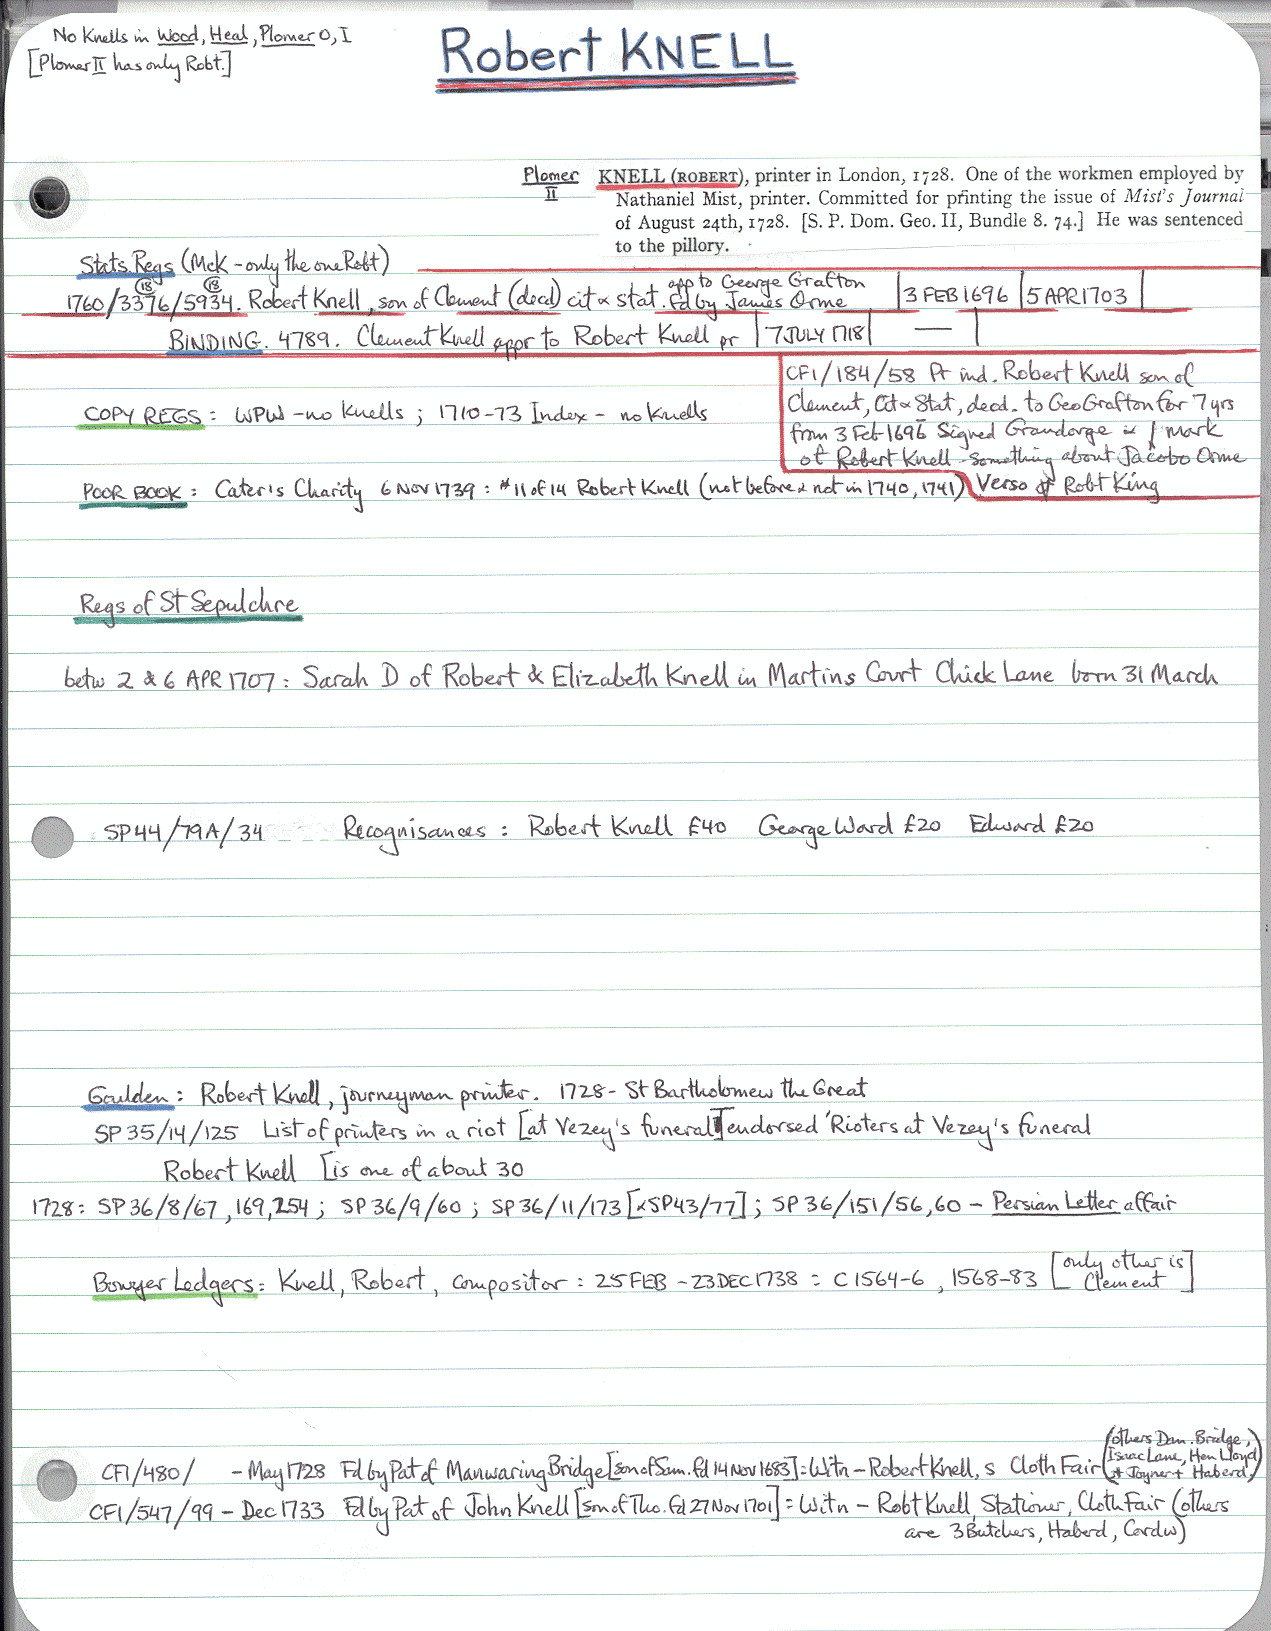 No Knells in Wood, Heal, Plomer O, I
[Plomer II has only Robt.]
Robert KNELL
Plomer II
KNELL (ROBERT), printer in London, 1728. One of the workmen employed by
Nathaniel Mist, printer. Committed for printing the issue of Mist's Journal
of August 24th, 1728. [S. P. Dom. Geo. II, Bundle 8. 74.] He was sentenced
to the pillory.
Stats Regs (McK - only the one Robt)
1760/3376/5934. Robert Knell, son of Clement (decd) cit & stat. app to George Grafton fd by James Orme | 3 FEB 1696 | 5 APR 1703 |
18 18
BINDING. 4789. Clement Knell appr to Robert Knell pr | 7 JULY 1718 | — |
CF1/184/58 Pr ind. Robert Knell son of
Clement, Cit & Stat, decd. to Geo Grafton for 7 yrs
from 3 Feb 1696 Signed Grandorge & mark
of Robert Knell - Something about Jacobo Orme
Verso of Robt King
COPY REGS: WPW - no Knells; 1710-73 Index - no Knells
POOR BOOK: Cater's Charity 6 NOV 1739: #11 of 14 Robert Knell (not before & not in 1740, 1741)
Regs of St Sepulchre
betw 2 & 6 APR 1707: Sarah D of Robert & Elizabeth Knell in Martins Court Chick Lane born 31 March
SP44/79A/34 Recognisances: Robert Knell £40 George Ward £20 Edward £20
Goulden: Robert Knell, journeyman printer. 1728 - St Bartholomew the Great
SP 35/14/125 List of printers in a riot [at Vezey's funeral] endorsed 'Rioters at Vezey's funeral
Robert Knell [is one of about 30
1728: SP 36/8/67, 169, 254; SP 36/9/60; SP 36/11/173 [& SP43/77]; SP 36/151/56, 60 - Persian Letter affair
Bowyer Ledgers: Knell, Robert, compositor: 25 FEB - 23 DEC 1738 = C1564-6, 1568-83 [only other is Clement]
CF1/480/ - May 1728 Fd by Pat of Manwaring Bridge [son of Sam. fd 14 Nov 1683] = Witn - Robert Knell, s Cloth Fair (others Dan. Bridge, Isaac Lane, Hen Lloyd & Joyner & Haberd)
CF1/547/99 - Dec 1733 Fd by Pat of John Knell [son of Tho. fd 27 Nov 1701] = Witn - Robt Knell, Stationer, Cloth Fair (others
are 3 Butchers, Haberd, Cordw)